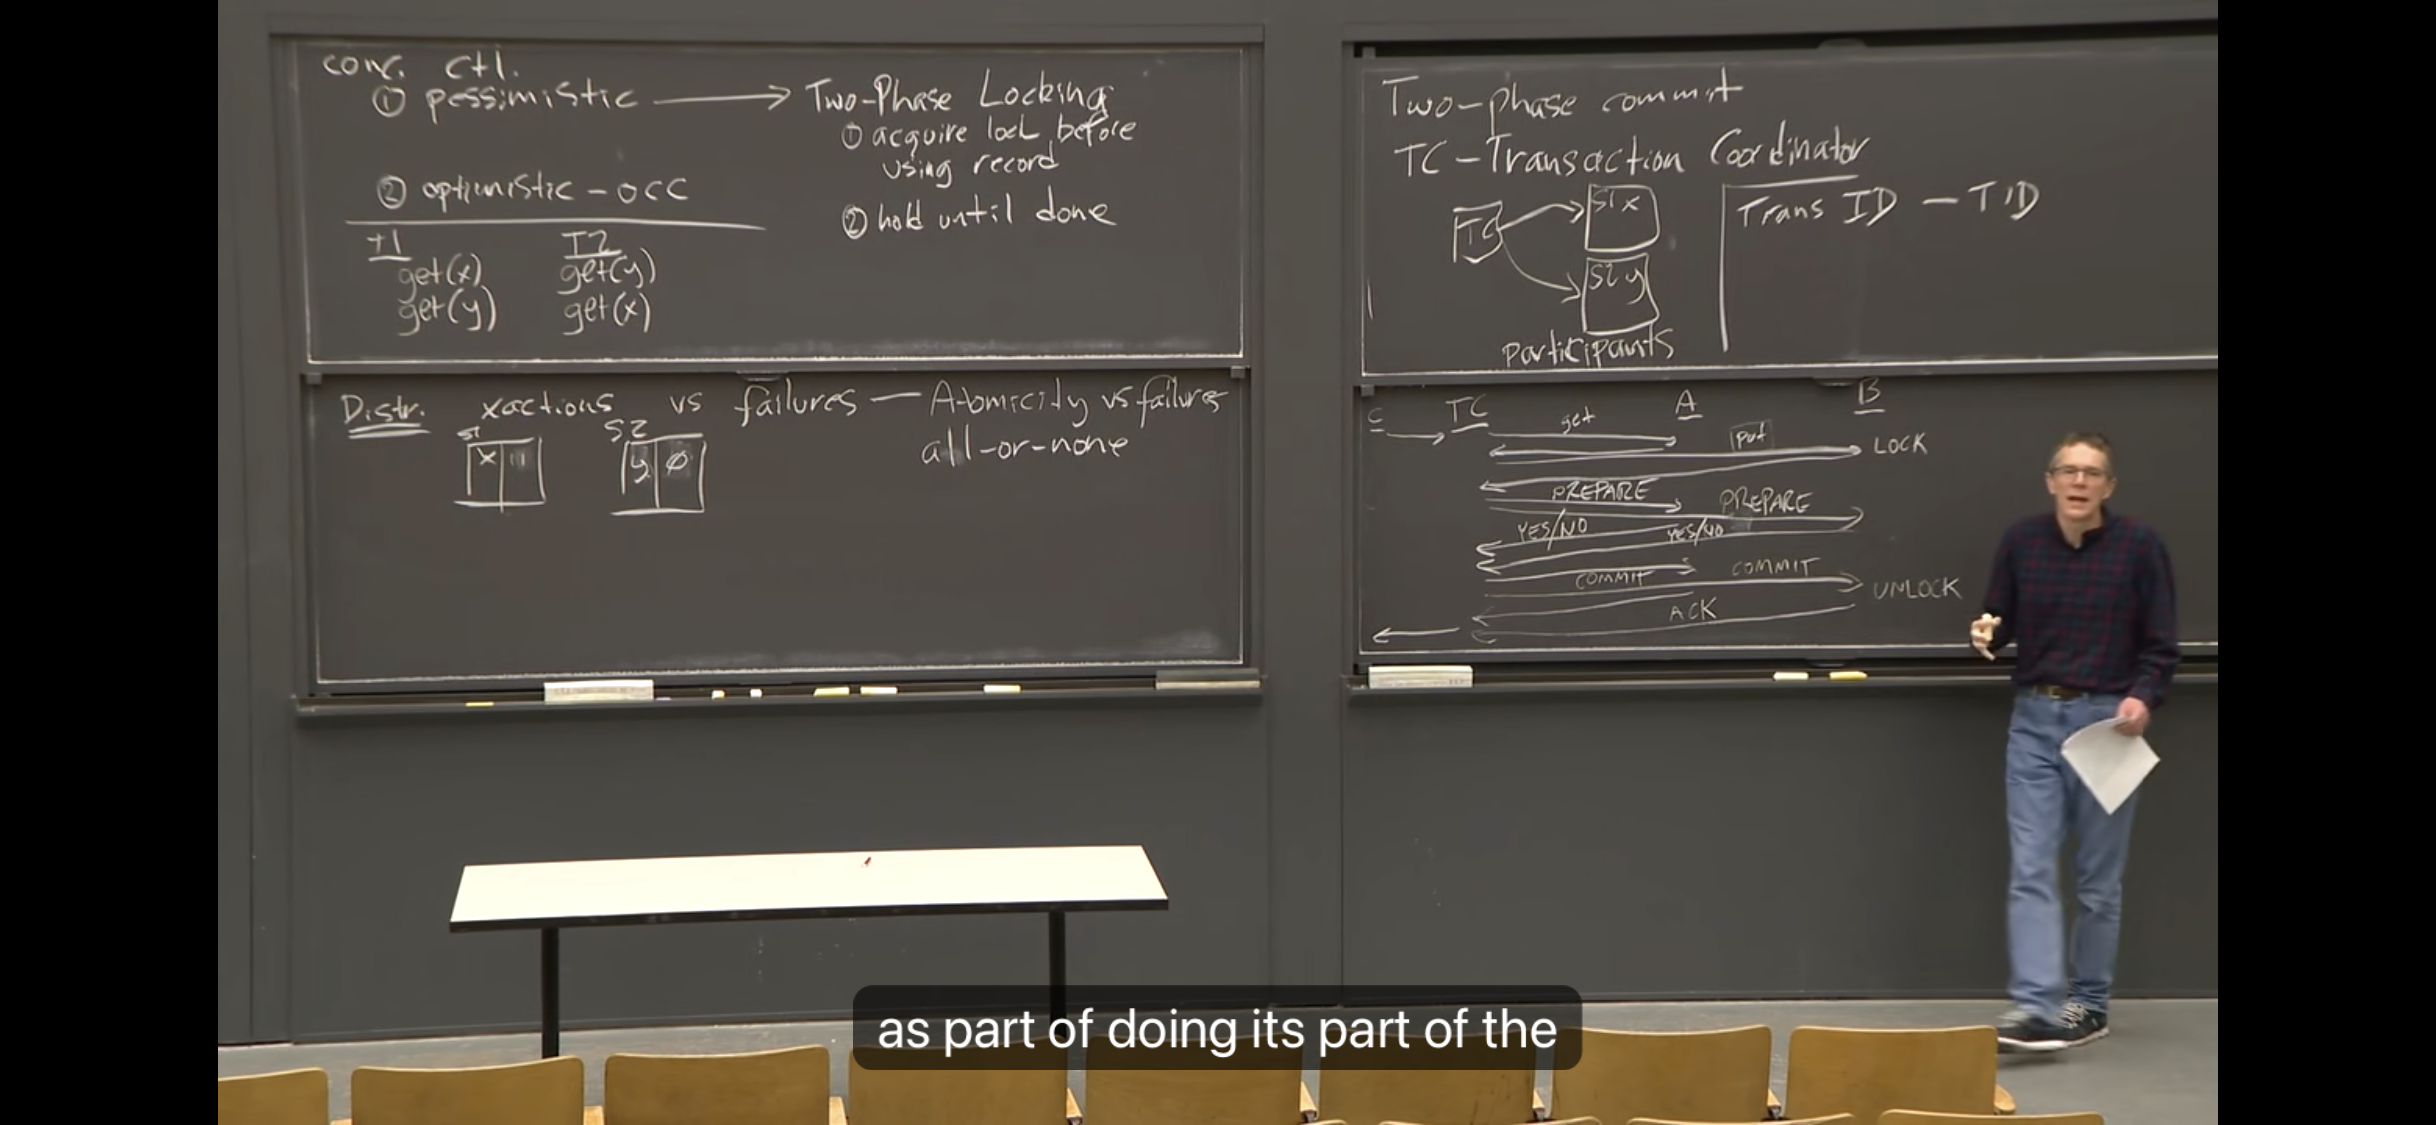 conc. ctl.
① pessimistic → Two-Phase Locking
① acquire lock before
using record
② hold until done
② optimistic - OCC
T1 T2
get(x) get(y)
get(y) get(x)
Distr. xactions vs failures — Atomicity vs failures
all-or-none
S1 S2
x
y ø
Two-phase commit
TC - Transaction Coordinator
TC
S1 x
S2 y
participants
Trans ID - TID
C TC A B
get
put
LOCK
PREPARE PREPARE
YES/NO YES/NO
COMMIT COMMIT
UNLOCK
ACK
as part of doing its part of the